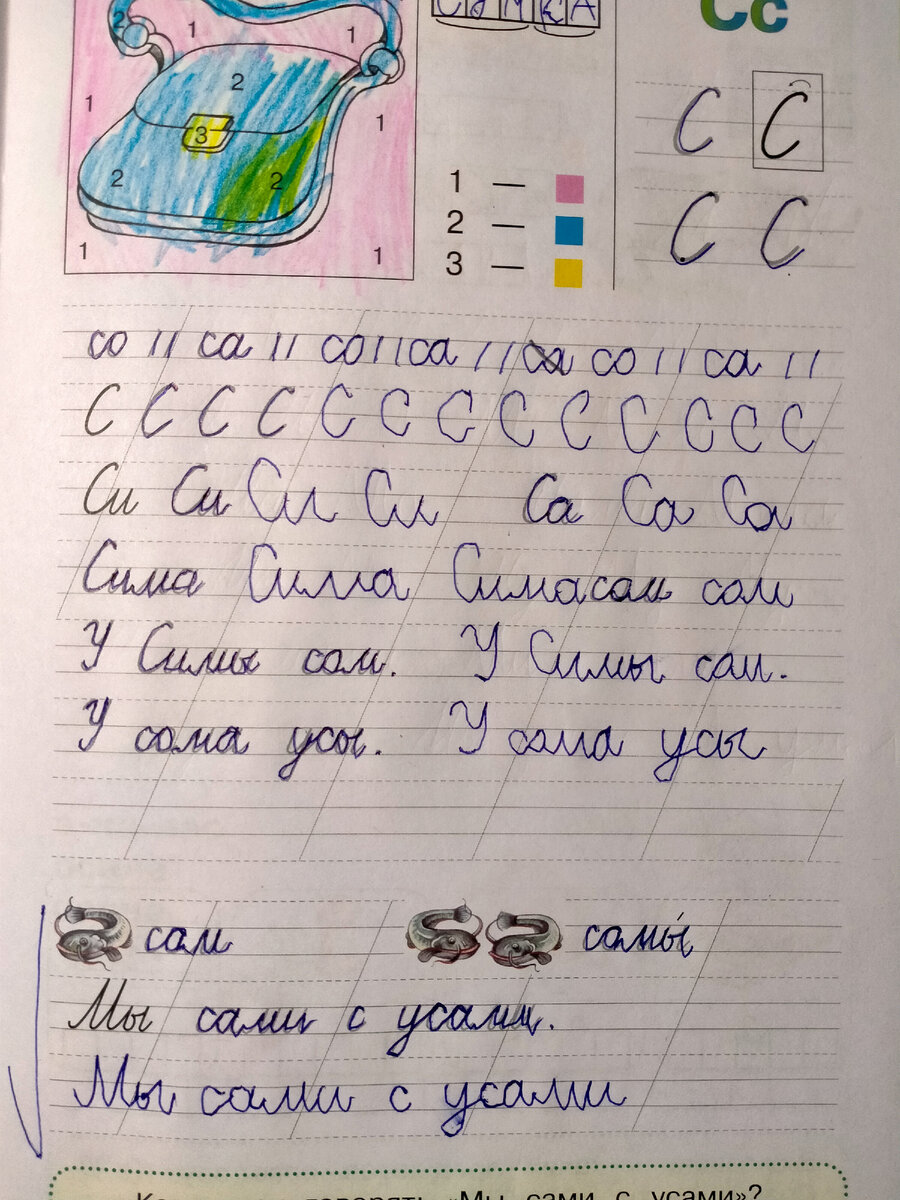 СУМКА
Сс
2 1 1
2
1 3 1
2 2
1 1
1 —
2 —
3 —
С С
С С
со // са // со // са // са со // са //
С С С С С С С С С С С С С
Си Си Си Си Са Са Са
Сима Сима Сима сом сом
У Симы сом. У Симы сом.
У сома усы. У сома усы
сом сомы́
Мы сами с усами.
Мы сами с усами
говорят «Мы сами с усами»?